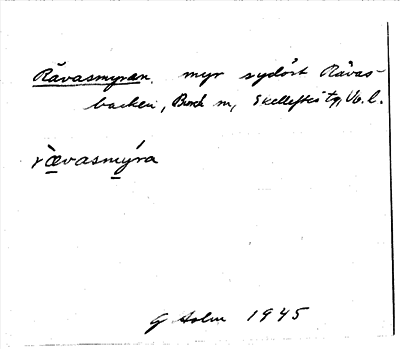 Rävasmyran. myr sydöst Rävas-
backen, Burå m, Skellefteå tg, Vb. l.
r̀ævasmýra
G Holm 1945